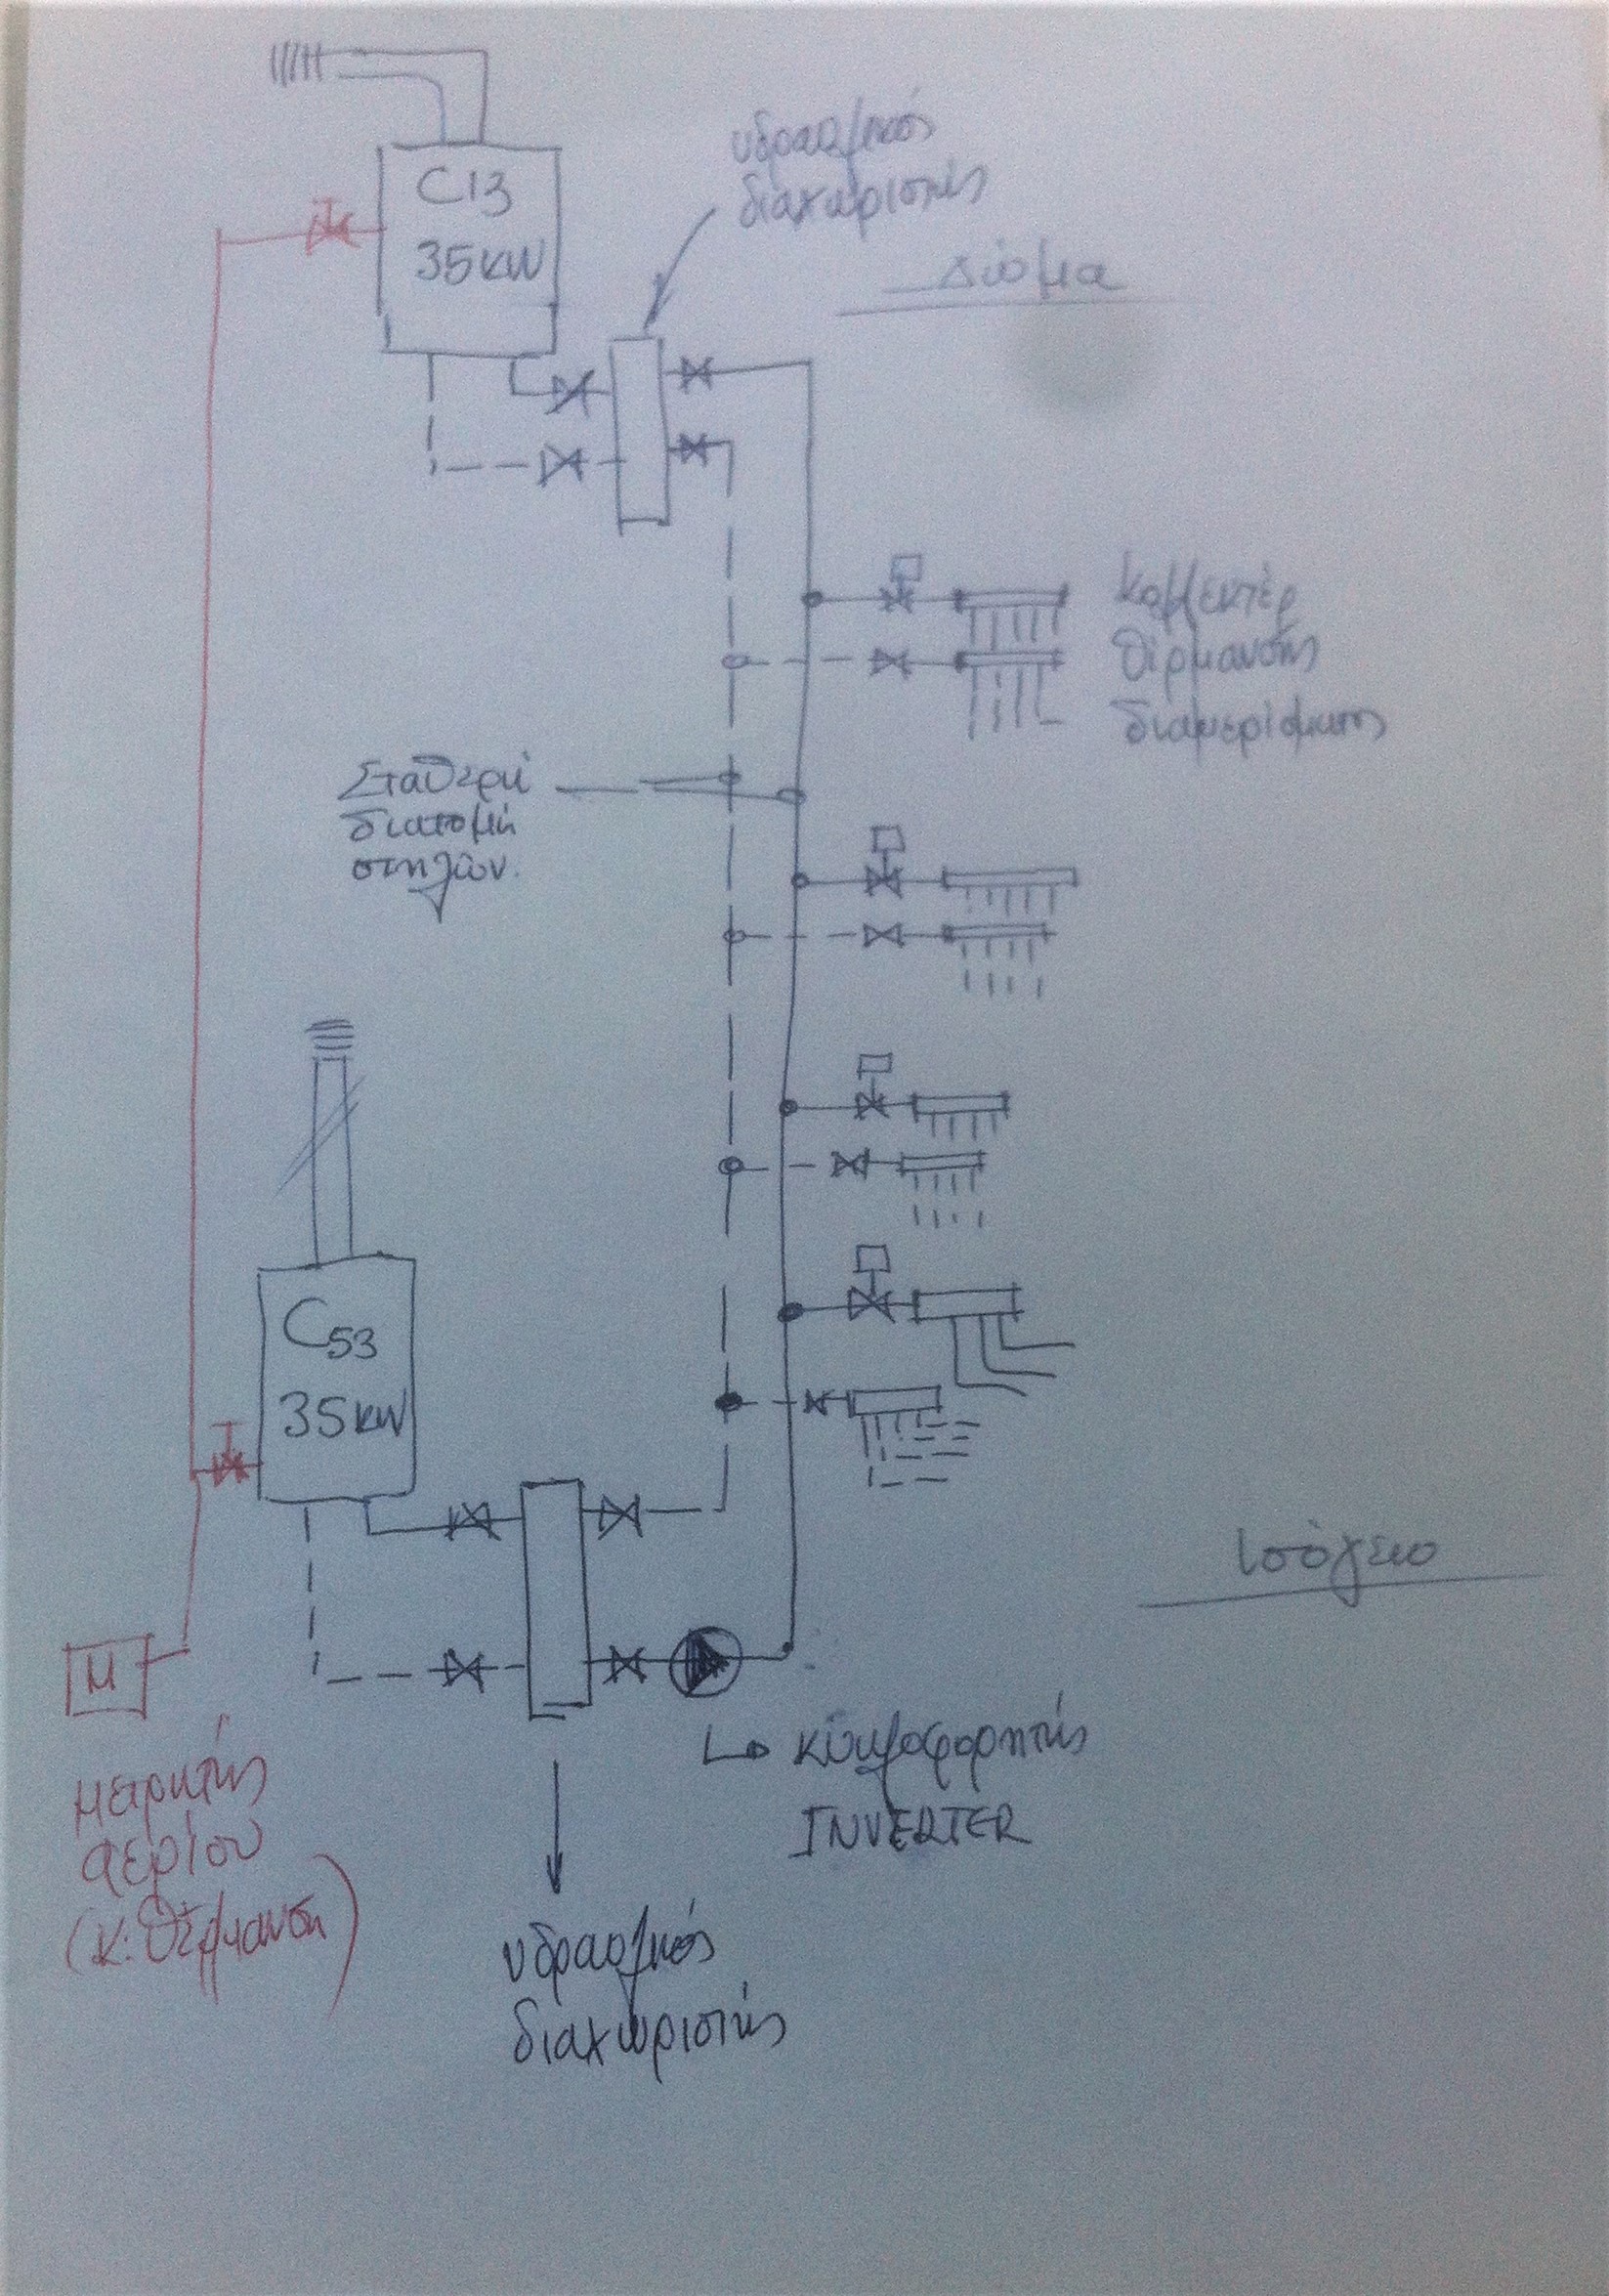 C13
35KW
υδραυλικός
διαχωριστής
Δώμα
κολλεκτέρ
θέρμανσης
διαμερίσματος
Σταθερή
διατομή
στηλών.
C53
35KW
Ισόγειο
M
μετρητής
αερίου
(κ. θέρμανση)
κυκλοφορητής
INVERTER
υδραυλικός
διαχωριστής